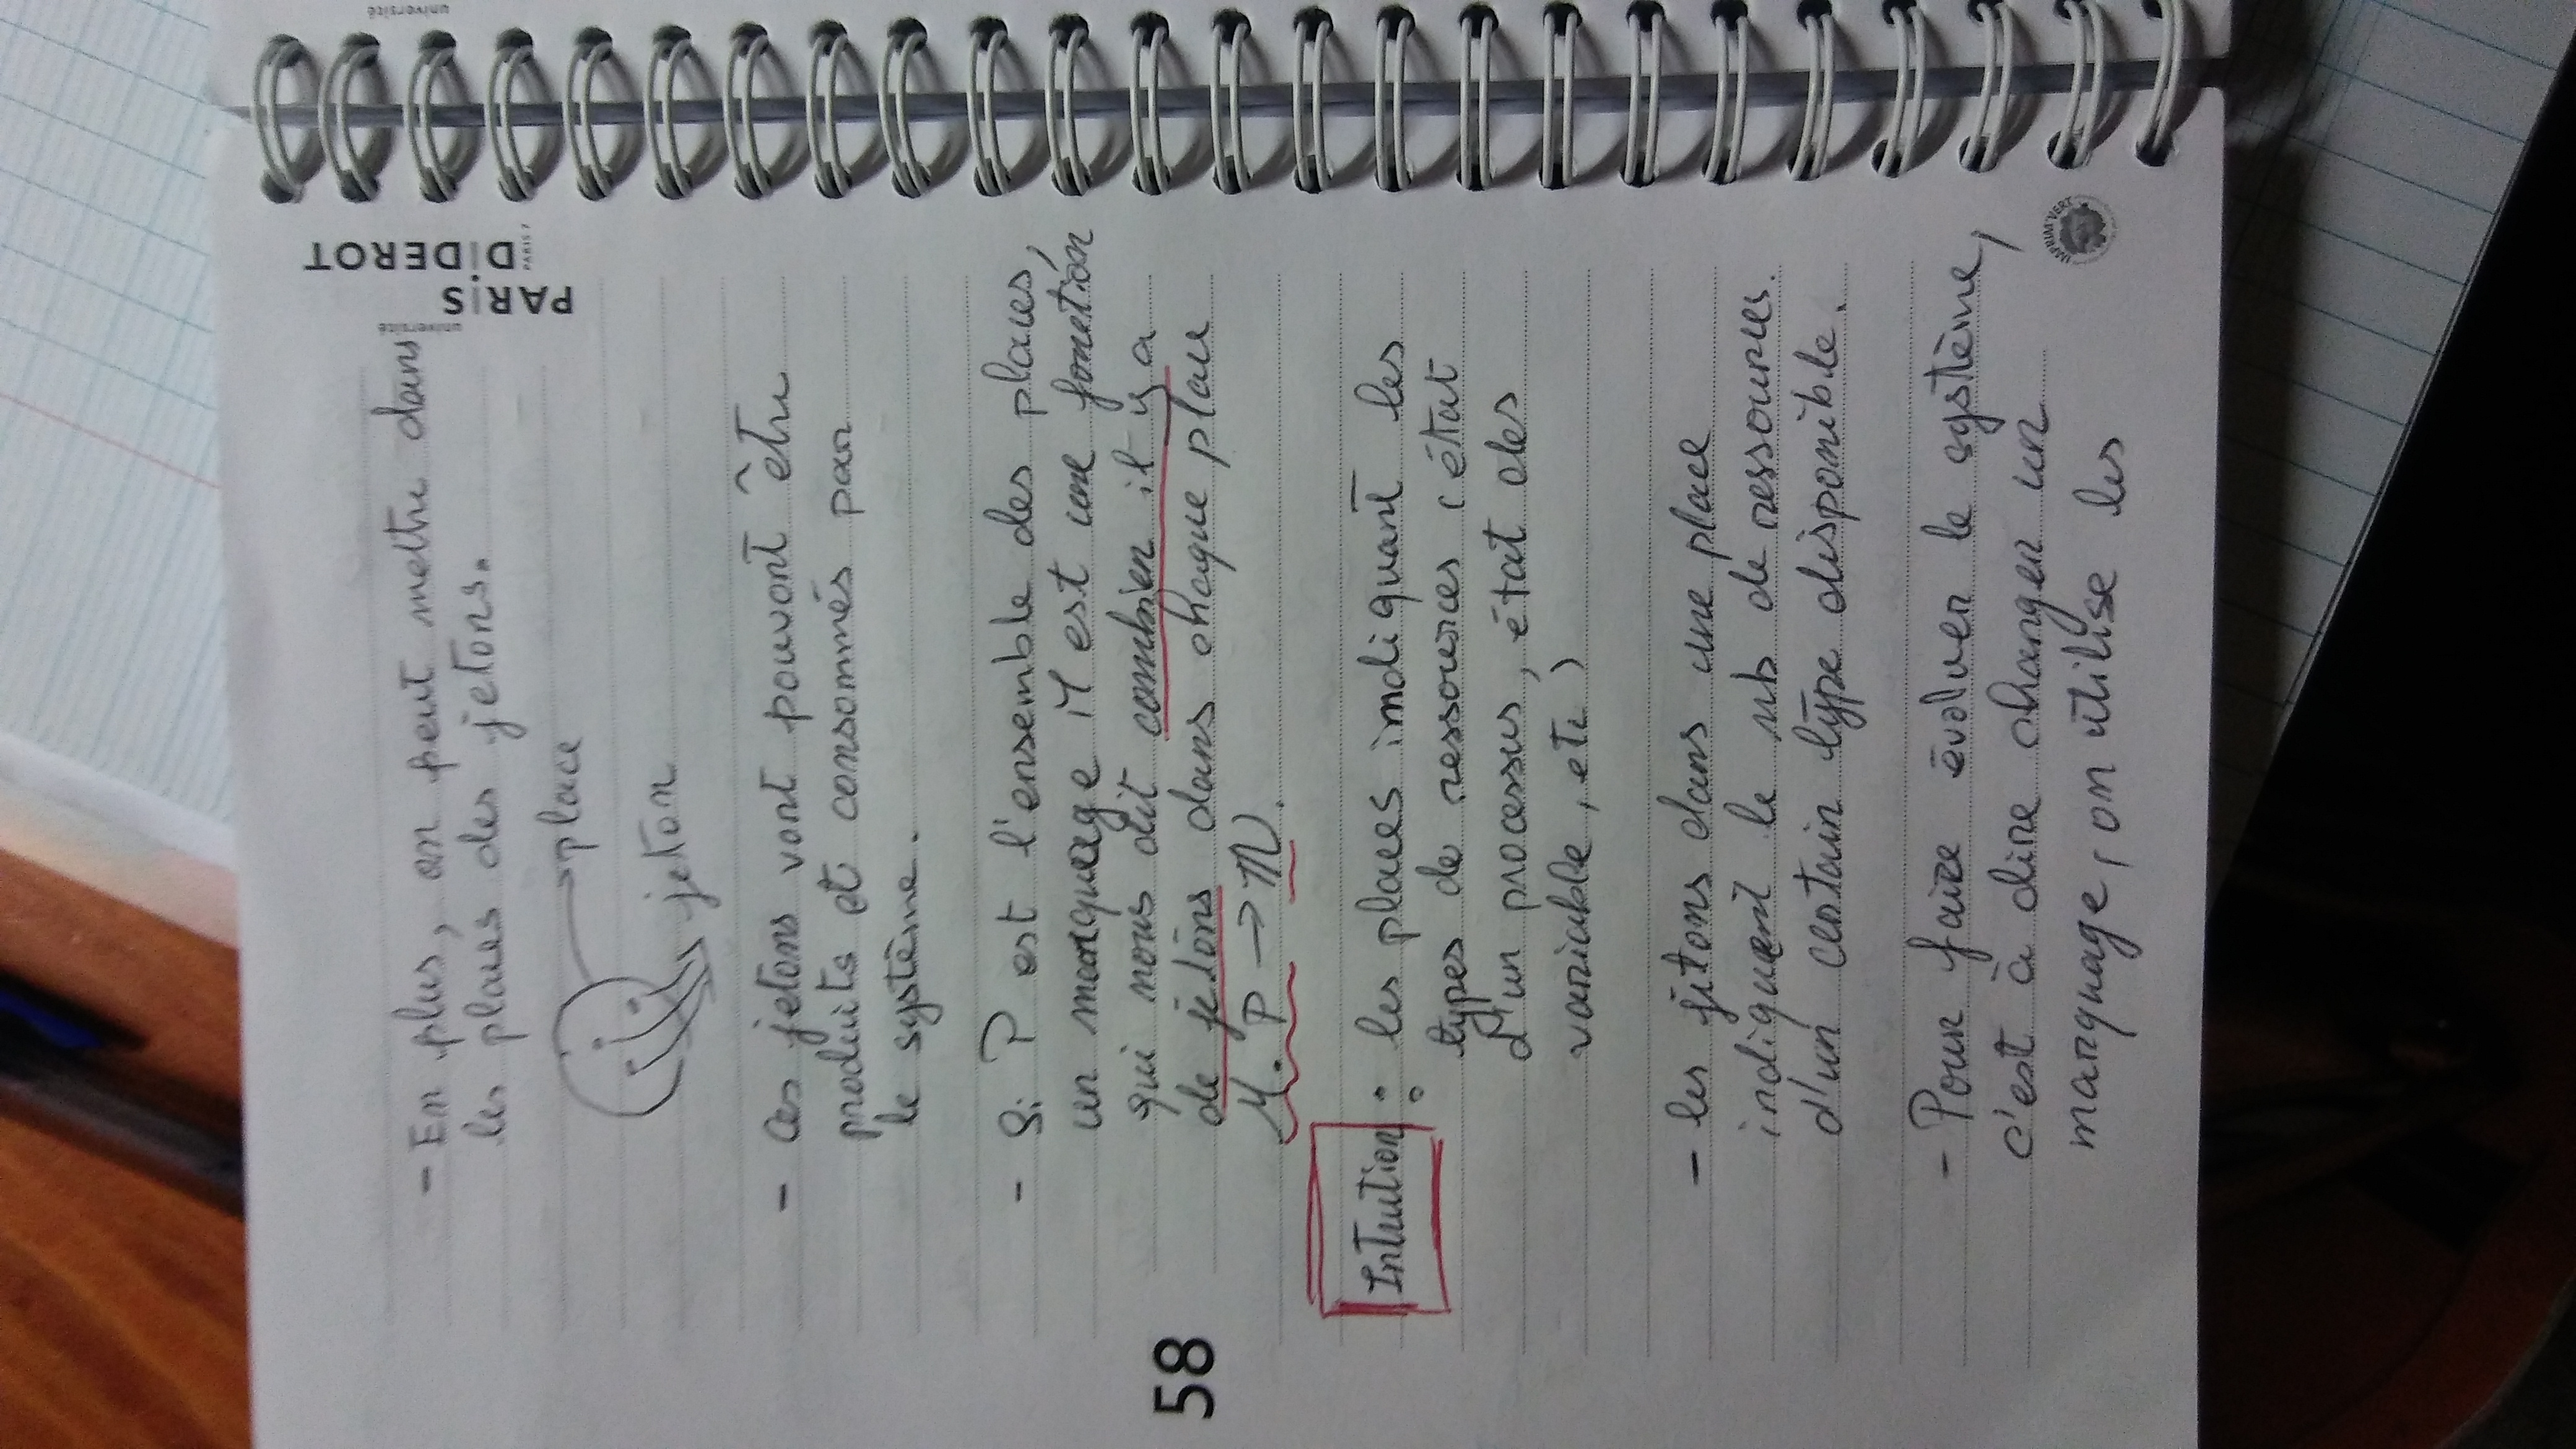 - En plus, on peut mettre dans
les places des jetons.
place
jeton
- Ces jetons vont pouvont être
produits et consommés par
le système.
- Si P est l'ensemble des places,
un marquage M est une fonction
qui nous dit combien il y a
de jetons dans chaque place
M. P → ℕ.
58
Intuition : les places indiquant les
types de ressources (état
d'un processus, état des
variable, etc)
- les jetons dans une place
indiquent le nb de ressources.
d'un certain type disponible.
- Pour faire évoluer le système,
c'est à dire changer un
marquage, on utilise les
université
PARIS
DIDEROT
PARIS 7
IMPRIM'VERT
université